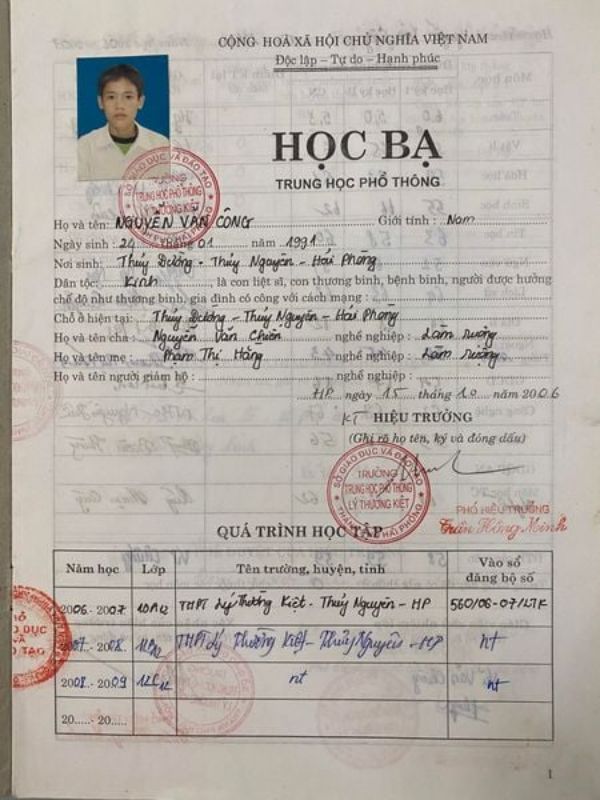 CỘNG HOÀ XÃ HỘI CHỦ NGHĨA VIỆT NAM
Độc lập – Tự do – Hạnh phúc
HỌC BẠ
TRUNG HỌC PHỔ THÔNG
SỞ GIÁO DỤC VÀ ĐÀO TẠO
TRƯỜNG
TRUNG HỌC PHỔ THÔNG
LÝ THƯỜNG KIỆT
Họ và tên: NGUYỄN VĂN CÔNG Giới tính : Nam
Ngày sinh : 24 tháng 01 năm 1991
Nơi sinh: Thuỷ Đường - Thuỷ Nguyên - Hải Phòng
Dân tộc: Kinh, là con liệt sĩ, con thương binh, bệnh binh, người được hưởng
chế độ như thương binh, gia đình có công với cách mạng :
Chỗ ở hiện tại: Thuỷ Đường - Thuỷ Nguyên - Hải Phòng
Họ và tên cha : Nguyễn Văn Chiên nghề nghiệp : Làm ruộng
Họ và tên mẹ : Phạm Thị Hằng nghề nghiệp : Làm ruộng
Họ và tên người giám hộ : nghề nghiệp :
HP ngày 15 tháng 10 năm 2006
KT HIỆU TRƯỞNG
(Ghi rõ họ tên, ký và đóng dấu)
SỞ GIÁO DỤC VÀ ĐÀO TẠO
TRƯỜNG
TRUNG HỌC PHỔ THÔNG
LÝ THƯỜNG KIỆT
THÀNH PHỐ HẢI PHÒNG
PHÓ HIỆU TRƯỞNG
Trần Hồng Minh
QUÁ TRÌNH HỌC TẬP
Năm học Lớp Tên trường, huyện, tỉnh Vào sổ đăng bộ số
2006 - 2007 10A12 THPT Lý Thường Kiệt - Thuỷ Nguyên - HP 560/06-07/LTK
2007 - 2008 THPT Lý Thường Kiệt - Thuỷ Nguyên - HP nt
2008 - 2009 12C12 nt nt
20..... - 20.....
1